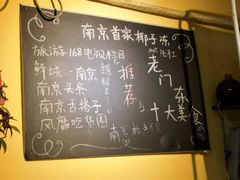 南京首家椰子冻
旅游168电视栏目
鲜城·南京
南京头条
南京吉搭子
风靡吃货圈
推荐
老门东
十大美食